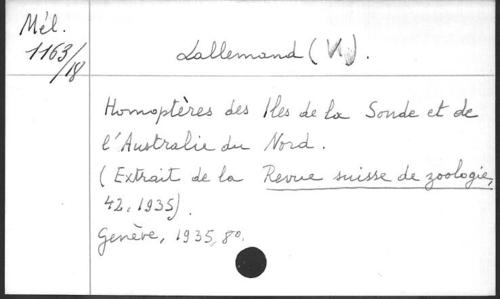 Mél.
1163/18
Lallemand (V.).
Homoptères des Iles de la Sonde et de
l'Australie du Nord.
(Extrait de la Revue suisse de zoologie,
42, 1935).
Genève, 1935, 8º.